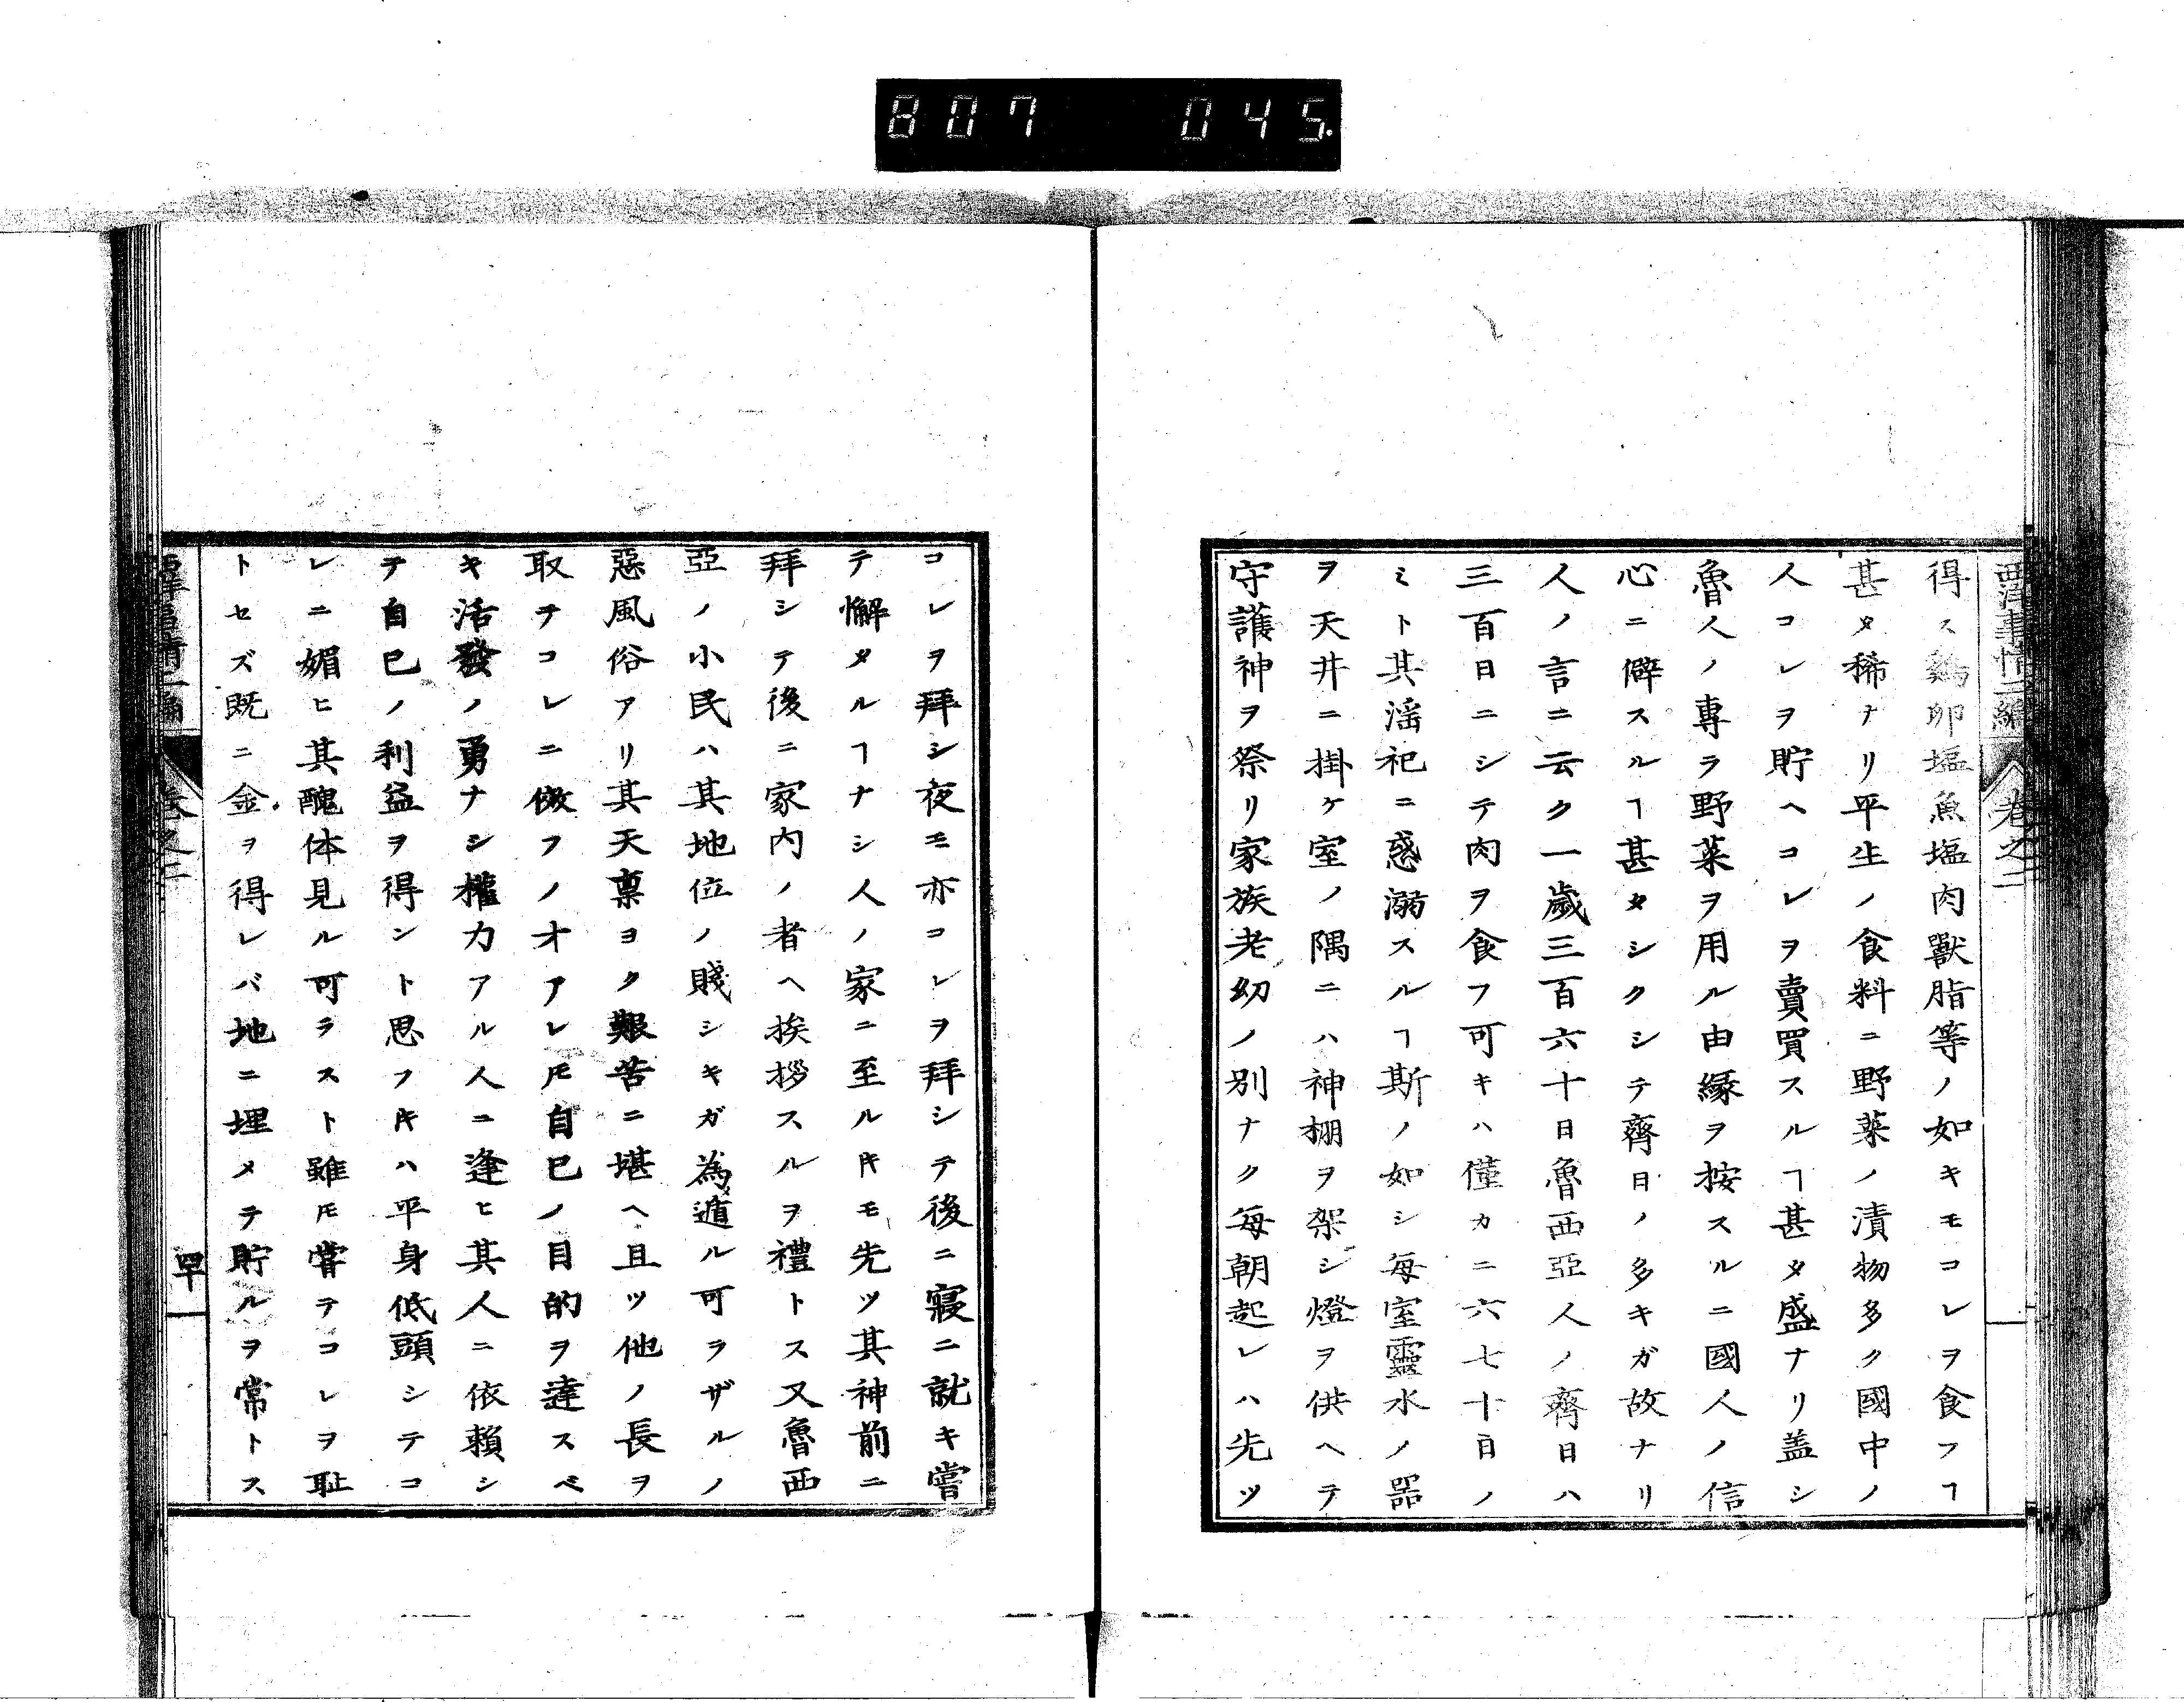 807 045.
西洋事情二編 巻之二
得ス鷄卵塩魚塩肉獸脂等ノ如キモコレヲ食フヿ
甚タ稀ナリ平生ノ食料ニ野菜ノ漬物多ク國中ノ
人コレヲ貯ヘコレヲ賣買スルヿ甚タ盛ナリ盖シ
魯人ノ專ラ野菜ヲ用ル由縁ヲ按スルニ國人ノ信
心ニ僻スルヿ甚タシクシテ齊日ノ多キガ故ナリ
人ノ言ニ云ク一歳三百六十日魯西亞人ノ齊日ハ
三百日ニシテ肉ヲ食フ可キハ僅カニ六七十日ノ
ミト其滛祀ニ惑溺スルヿ斯ノ如シ每室靈水ノ器
ヲ天井ニ掛ケ室ノ隅ニハ神棚ヲ架シ燈ヲ供ヘテ
守護神ヲ祭リ家族老幼ノ別ナク每朝起レハ先ツ
コレヲ拜シ夜モ亦コレヲ拜シテ後ニ寢ニ就キ嘗
テ懈タルヿナシ人ノ家ニ至ルキモ先ツ其神前ニ
拜シテ後ニ家内ノ者ヘ挨拶スルヲ禮トス又魯西
亞ノ小民ハ其地位ノ賤シキガ為遁ル可ラザルノ
惡風俗アリ其天禀ヨク艱苦ニ堪ヘ且ツ他ノ長ヲ
取テコレニ傚フノオアレ𪜈自巳ノ目的ヲ達スベ
キ活發ノ勇ナシ權力アル人ニ逢ヒ其人ニ依賴シ
テ自巳ノ利益ヲ得ント思フキハ平身低頭シテコ
レニ媚ヒ其醜体見ル可ラスト雖𪜈嘗テコレヲ耻
トセズ既ニ金ヲ得レバ地ニ埋メテ貯ルヲ常トス
西洋事情二編 巻之二 罕